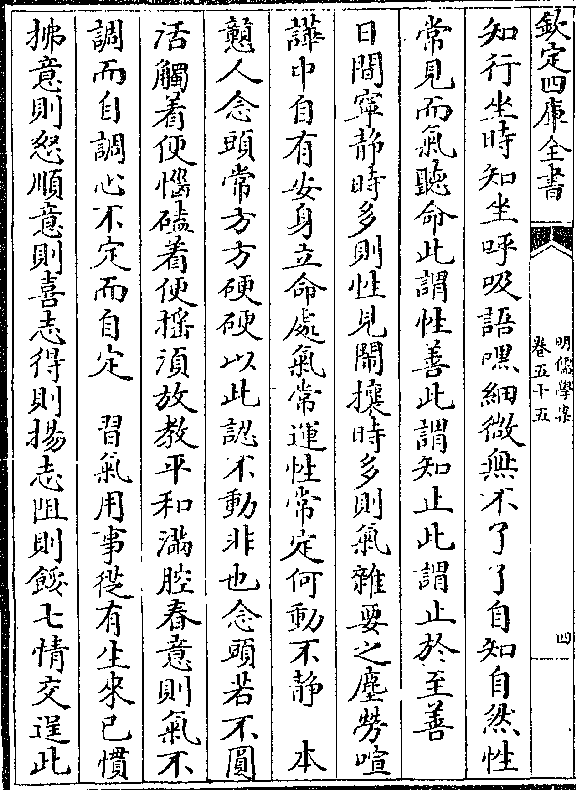 欽定四庫全書
明儒學案
卷五十五
四
知行坐時知坐呼吸語嘿細微無不了了自知自然性
常見而氣聽命此謂性善此謂知止此謂止於至善
日間寧静時多則性見鬧攘時多則氣雜要之塵勞喧
譁中自有安身立命處氣常運性常定何動不静　本
戇人念頭常方方硬硬以此認不動非也念頭若不圓
活觸着便惱磕着便搖須放教平和滿腔春意則氣不
調而自調心不定而自定　習氣用事從有生來已慣
拂意則怒順意則喜志得則揚志阻則餒七情交逞此